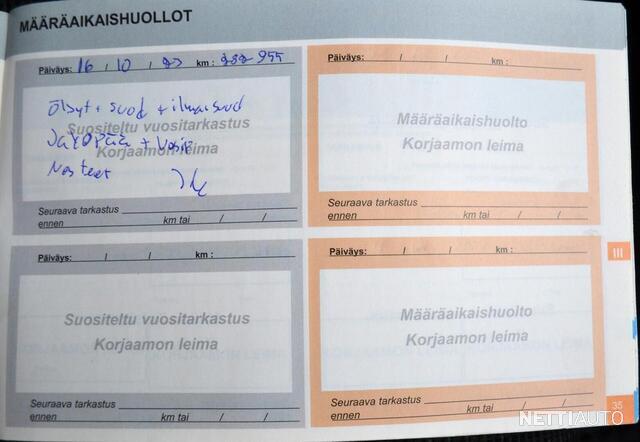 MÄÄRÄAIKAISHUOLLOT
Päiväys: 16 / 10 / 23 km :
Suositeltu vuositarkastus
Korjaamon leima
Öljyt + suod + ilmansuod
Jakopää + Vesip
Nesteet
Seuraava tarkastus
ennen km tai / /
Päiväys: / / km :
Määräaikaishuolto
Korjaamon leima
Seuraava tarkastus
ennen km tai / /
III
Päiväys: / / km :
Suositeltu vuositarkastus
Korjaamon leima
Seuraava tarkastus
ennen km tai / /
Päiväys: / / km :
Määräaikaishuolto
Korjaamon leima
Seuraava tarkastus
ennen km tai / /
35
NETTIAUTO